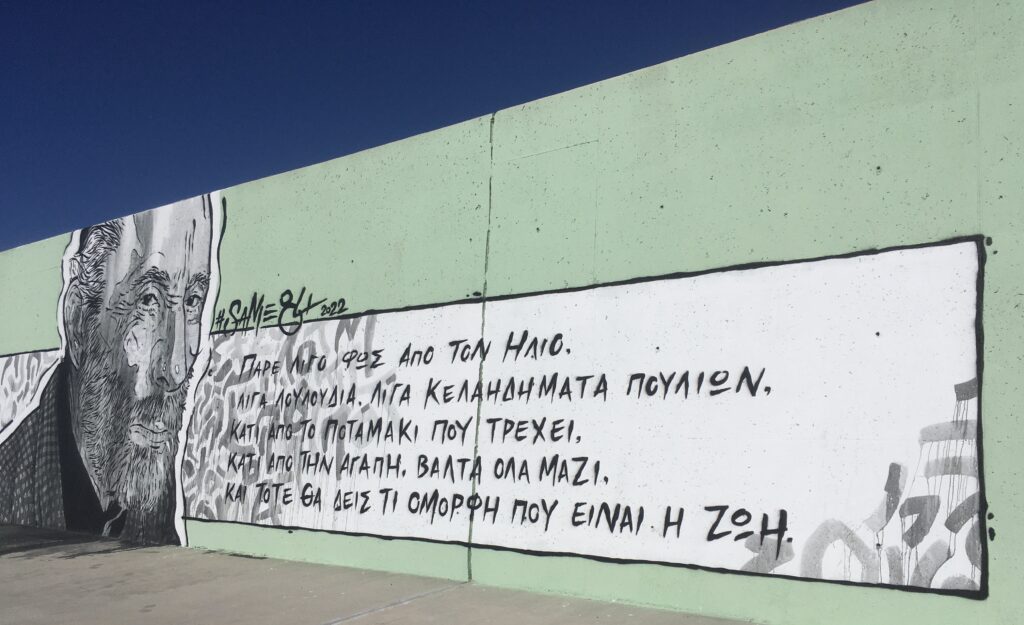 #SAME84 2022
ΠΑΡΕ ΛΙΓΟ ΦΩΣ ΑΠΟ ΤΟΝ ΗΛΙΟ.
ΛΙΓΑ ΛΟΥΛΟΥΔΙΑ, ΛΙΓΑ ΚΕΛΑΗΔΗΜΑΤΑ ΠΟΥΛΙΩΝ,
ΚΑΤΙ ΑΠΟ ΤΟ ΠΟΤΑΜΑΚΙ ΠΟΥ ΤΡΕΧΕΙ,
ΚΑΤΙ ΑΠΟ ΤΗΝ ΑΓΑΠΗ, ΒΑΛΤΑ ΟΛΑ ΜΑΖΙ,
ΚΑΙ ΤΟΤΕ ΘΑ ΔΕΙΣ ΤΙ ΟΜΟΡΦΗ ΠΟΥ ΕΙΝΑΙ Η ΖΩΗ.